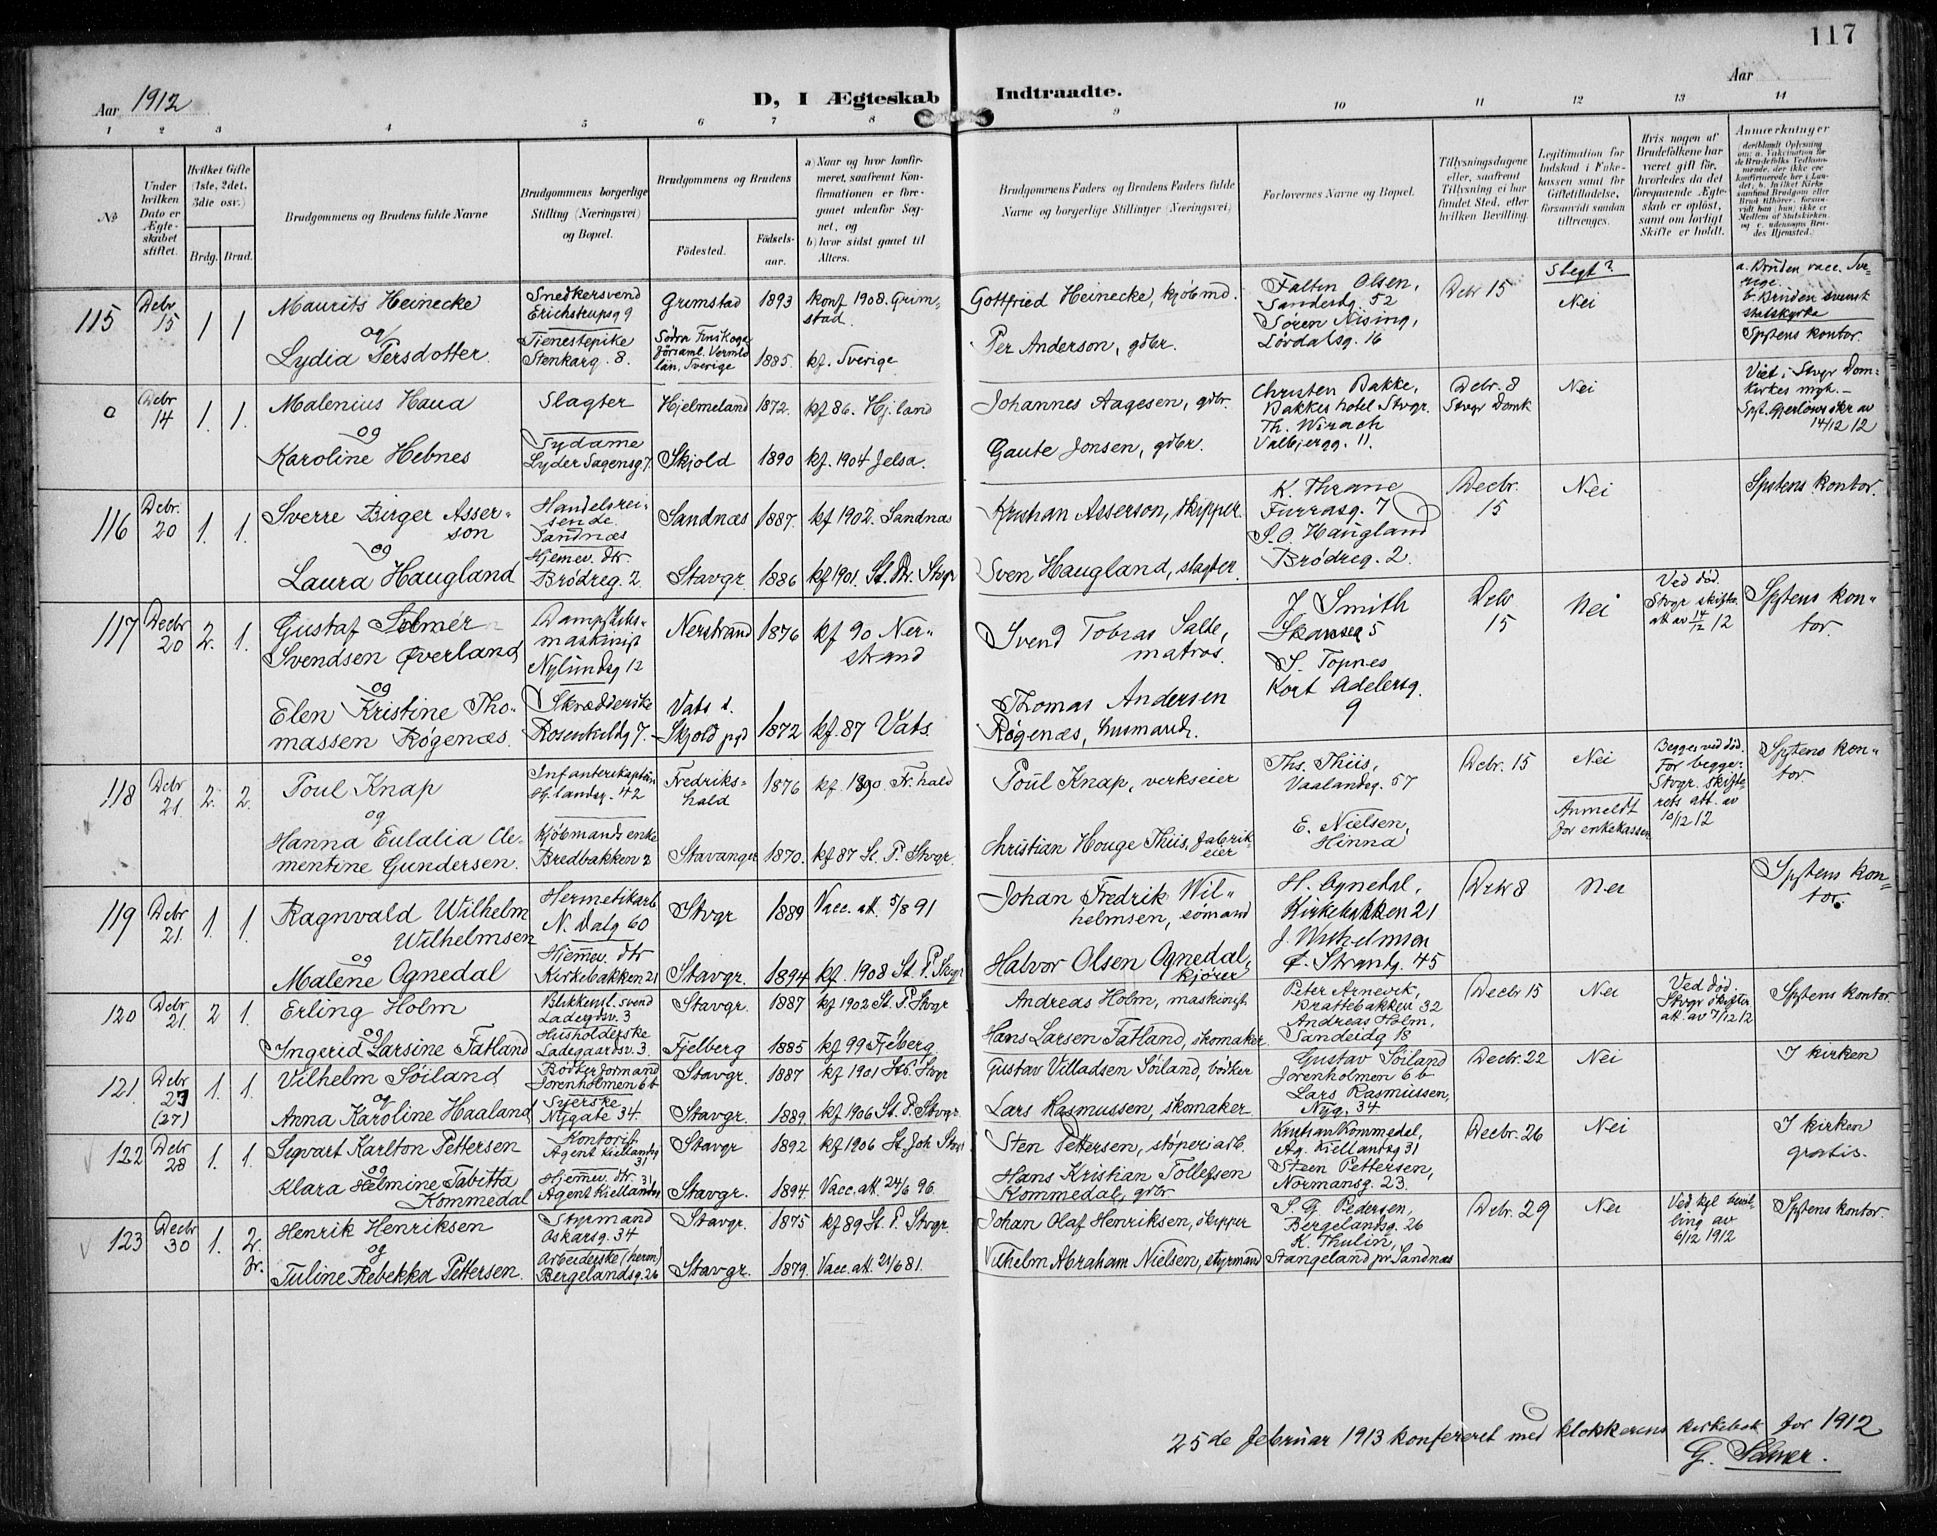 117
Aar 1912
D, I Ægteskab Indtraadte.
Aar
1 2 3 4 5 6 7 8 9 10 11 12 13 14
No
Under hvilken Dato er Ægteskabet stiftet.
Hvilket Gifte (1ste, 2det, 3die osv.)
Brdg. Brud.
Brudgommens og Brudens fulde Navne
Brudgommens borgerlige Stilling (Næringsvei) og Bopæl.
Brudgommens og Brudens
Födested.
Födselsaar.
a) Naar og hvor konfirmeret, saafremt Konfirmationen er foregaaet udenfor Sognet, og
b) hvor sidst gaaet til Alters.
Brudgommens Faders og Brudens Faders fulde Navne og borgerlige Stillinger (Næringsvei)
Forlovernes Navne og Bopæl.
Tillysningsdagene eller, saafremt Tillysning ei har fundet Sted, efter hvilken Bevilling.
Legitimation for Indskud i Enkekassen samt for Giftetilladelse, forsaavidt saadan tiltrænges.
Hvis nogen af Brudefolkene har været gift før, hvorledes da det foregaaende Ægteskab er opløst, samt om lovligt Skifte er holdt.
Anmærkninger
115 Debr 15 1 1
Maurits Heinecke
og
Lydia Persdotter
Snedkersvend
Erichstrupsg 9
Tienestepike
Stenkarg. 8.
Grimstad 1893 Konf. 1908. Grimstad.
Södra Finskoga Församl. Vermlän, Sverige 1885. kf. Sverige
Gottfried Heinecke, kjøbmd.
Per Anderson, gdbr.
Faltin Olsen,
Sandesdg. 52
Søren Nising,
Løvdalsg. 16
Debr 15
Slegt?
Nei
a. Bruden vacc. Sverige.
b. Bruden svensk statskyrka
Spstens kontor.
0 Debr 14 1. 1.
Malenius Haua
og
Karoline Hebnes
Slagter
Sydame
Lyder Sagensg 7.
Hjelmeland 1872. kf 86. Hj.land
Skjold 1890 kf. 1904 Jelsa.
Johannes Aagesen, gdbr.
Gaute Jonsen, gdbr.
Christen Bakke,
Bakkes hotel Stvgr.
Th. Wirach
Valbjergg. 11.
Debr. 8
Stvgr Domk
Nei
Viet i Stvgr Domkirkes mgh. —
14/12 12
116 Debr. 20 1. 1.
Sverre Birger Asserson
og
Laura Haugland
Handelsreisende
Sandnæs
Hjemev. dtr
Brödreg. 2.
Sandnæs 1887. kf 1902. Sandnæs
Stavgr. 1886 kf 1901. St. Ptr. Stvgr
Kristian Asserson, skipper.
Sven Haugland, slagter.
K. Thrane
Furrasg. 7
S. O. Haugland
Brödreg. 2.
Decbr. 15
Nei
Spstens kontor.
117 Decbr 20 2. 1.
Gustaf Selmer
Svendsen Øverland
og
Elen Kristine Thomassen Røgenæs.
Dampskibsmaskinist
Nylundsg 12
Skrædderske
Rosenkildg 7.
Nerstrand 1876 kf 90 Nerstrand
Vats s. Skjold pgd 1872 kf. 87 Vats.
Svend Tobias Salte, matros.
Thomas Andersen
Røgenæs, husmand.
J. Smith
Skanseg 5
S. Topnes
Kort Adelersg. 9
Debr 15
Nei
Ved død. Stvgr skifter. att av 14/12 12
Spstens kontor.
118 Debr 21. 2. 2.
Poul Knap
og
Hanna Eulalia Clementine Gundersen.
Infanterikaptein
Hj.landsg. 42
Kjöbmands enke
Bredbakken 2
Fredrikshald 1876 kf. 1890 Fr.hald
Stavanger 1870. kf 87 St. P. Stvgr.
Poul Knap, verkseier
Christian Houge Thiis, fabrikeier
Ths. Thiis,
Vaalandsg. 57
E. Nielsen,
Hinna
Debr. 15
Nei
Anmeldt for enkekassen
Begges ved død. For begge: Stvgr. skifterets att. av 10/12 12
Spstens kontor.
119 Debr 21. 1. 1.
Ragnvald Wilhelm Wilhelmsen
og
Malene Ognedal
Hermetikarb
N. Dalg 60
Hjemev. dtr
Kirkebakken 21
Stvgr 1889 Vacc. att. 5/8 91
Stavgr. 1894 kf. 1908 St. P. Stvgr
Johan Fredrik Wilhelmsen, sömand
Halvor Olsen Ognedal, kjører
H. Ognedal,
Kirkebakken 21
J. Wilhelmsen
Ø. Strandg. 45
Debr 8
Nei
Spstens kontor.
120 Debr 21. 2 1.
Erling Holm
og
Ingerid Larsine Fatland
Blikkensl. svend
Ladegdsv. 3
Husholderske
Ladegaardsv. 3.
Stavgr. 1887 kf 1902 St. P. Stvgr
Fjelberg 1885 kf 99 Fjelberg
Andreas Holm, maskinist
Hans Larsen Fatland, skomaker
Peter Arnevik,
Brattebakken 32
Andreas Holm,
Sandeidg 18
Decbr 15
Nei
Ved død. Stvgr skifter att. av 7/12 12
Spstens kontor.
121. Debr 27 (27) 1. 1.
Vilhelm Söiland
og
Anna Karoline Haaland
Bödkerformand
Jorenholmen 6 b
Syerske
Nygate 34.
Stavgr. 1887 kf 1901 St. Stvgr
Stavgr. 1889. kf 1906 St. P. Stvgr.
Gustav Villadsen Söiland, bödker
Lars Rasmussen, skomaker
Gustav Söiland
Jorenholmen 6 b
Lars Rasmussen,
Nyg. 34
Decbr. 22
Nei
I kirken
122 Debr 28 1. 1.
Sigvart Karlton Pettersen
og
Klara Helmine Tabitta Kommedal
Kontorist
Agent Kiellandsg 31
Hjemev. dtr.
Agent Kiellandsg 31
Stavgr 1892 kf 1906 St Joh Stvgr
Stavgr. 1894. Vacc. att. 24/6 96.
Sten Pettersen, stöperiarb.
Hans Kristian Tollefsen
Kommedal, gdbr
Kristian Kommedal,
Ag. Kiellandsg 31
Steen Pettersen,
Normansg. 23.
Decbr. 26
Nei
I kirken
gratis.
123 Decbr 30 1. 2. fr.
Henrik Henriksen
og
Tuline Rebekka Pettersen.
Styrmand
Oskarsg. 34
Arbeiderske (herm)
Bergelandsg. 26
Stavgr. 1875 kf 89 St. P. Stvgr.
Stavgr. 1879. Vacc. att. 24/6 81.
Johan Olaf Henriksen, skipper
Vilhelm Abraham Nielsen, styrmand
S. G. Pedersen,
Bergelandsg. 26
K. Thulin,
Stangeland pr. Sandnæs
Debr. 29
Nei
Ved kgl bevilling av 6/12 1912
Spstens kontor.
25de februar 1913 konfereret med klokkerens kirkebok for 1912